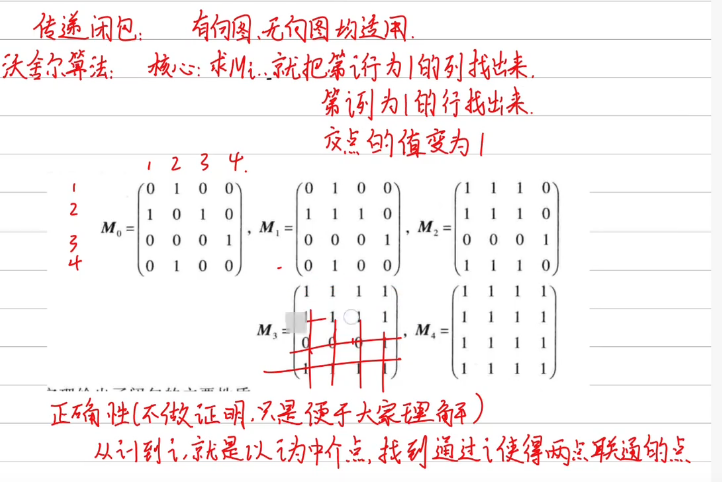 传递闭包: 有向图、无向图均适用.
沃舍尔算法: 核心: 求Mi..就把第i行为1的列找出来.
第i列为1的行找出来.
交点的值变为1
1 2 3 4.
1 M₀ = (0 1 0 0), M₁ = (0 1 0 0), M₂ = (1 1 1 0)
2 1 0 1 0 1 1 1 0 1 1 1 0
3 0 0 0 1 0 0 0 1 0 0 0 1
4 0 1 0 0 0 1 0 0 1 1 1 0
M₃ = (1 1 1 1), M₄ = (1 1 1 1)
1 1 1 1 1 1 1 1
0 0 0 1 1 1 1 1
1 1 1 1 1 1 1 1
正确性(不做证明,只是便于大家理解)
从i-1到i,就是以i为中介点,找到通过i使得两点联通的点